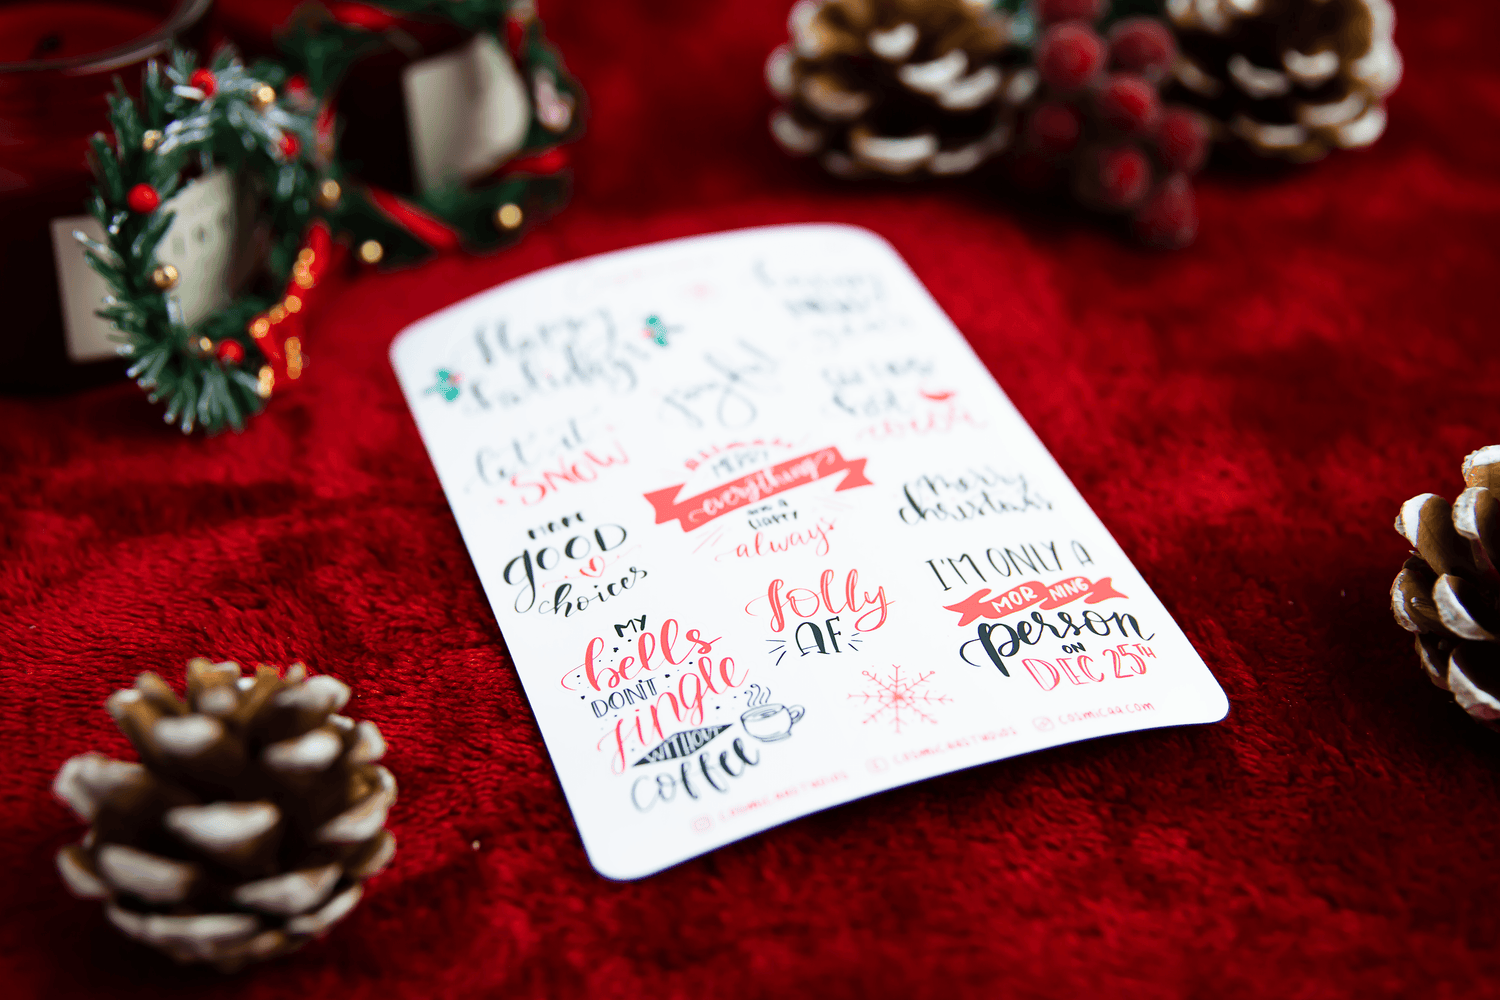 Happy
holidays
happy
new
year
joyful
let it
SNOW
MERRY
everything
and a
HAPPY
always
merry
christmas
MAKE
good
choices
I'M ONLY A
MORNING
person
ON
DEC 25TH
Jolly
AF
MY
bells
DON'T
jingle
WITHOUT
coffee
COSMICAASTUDIOS
COSMICAASTUDIOS
COSMICAA.COM